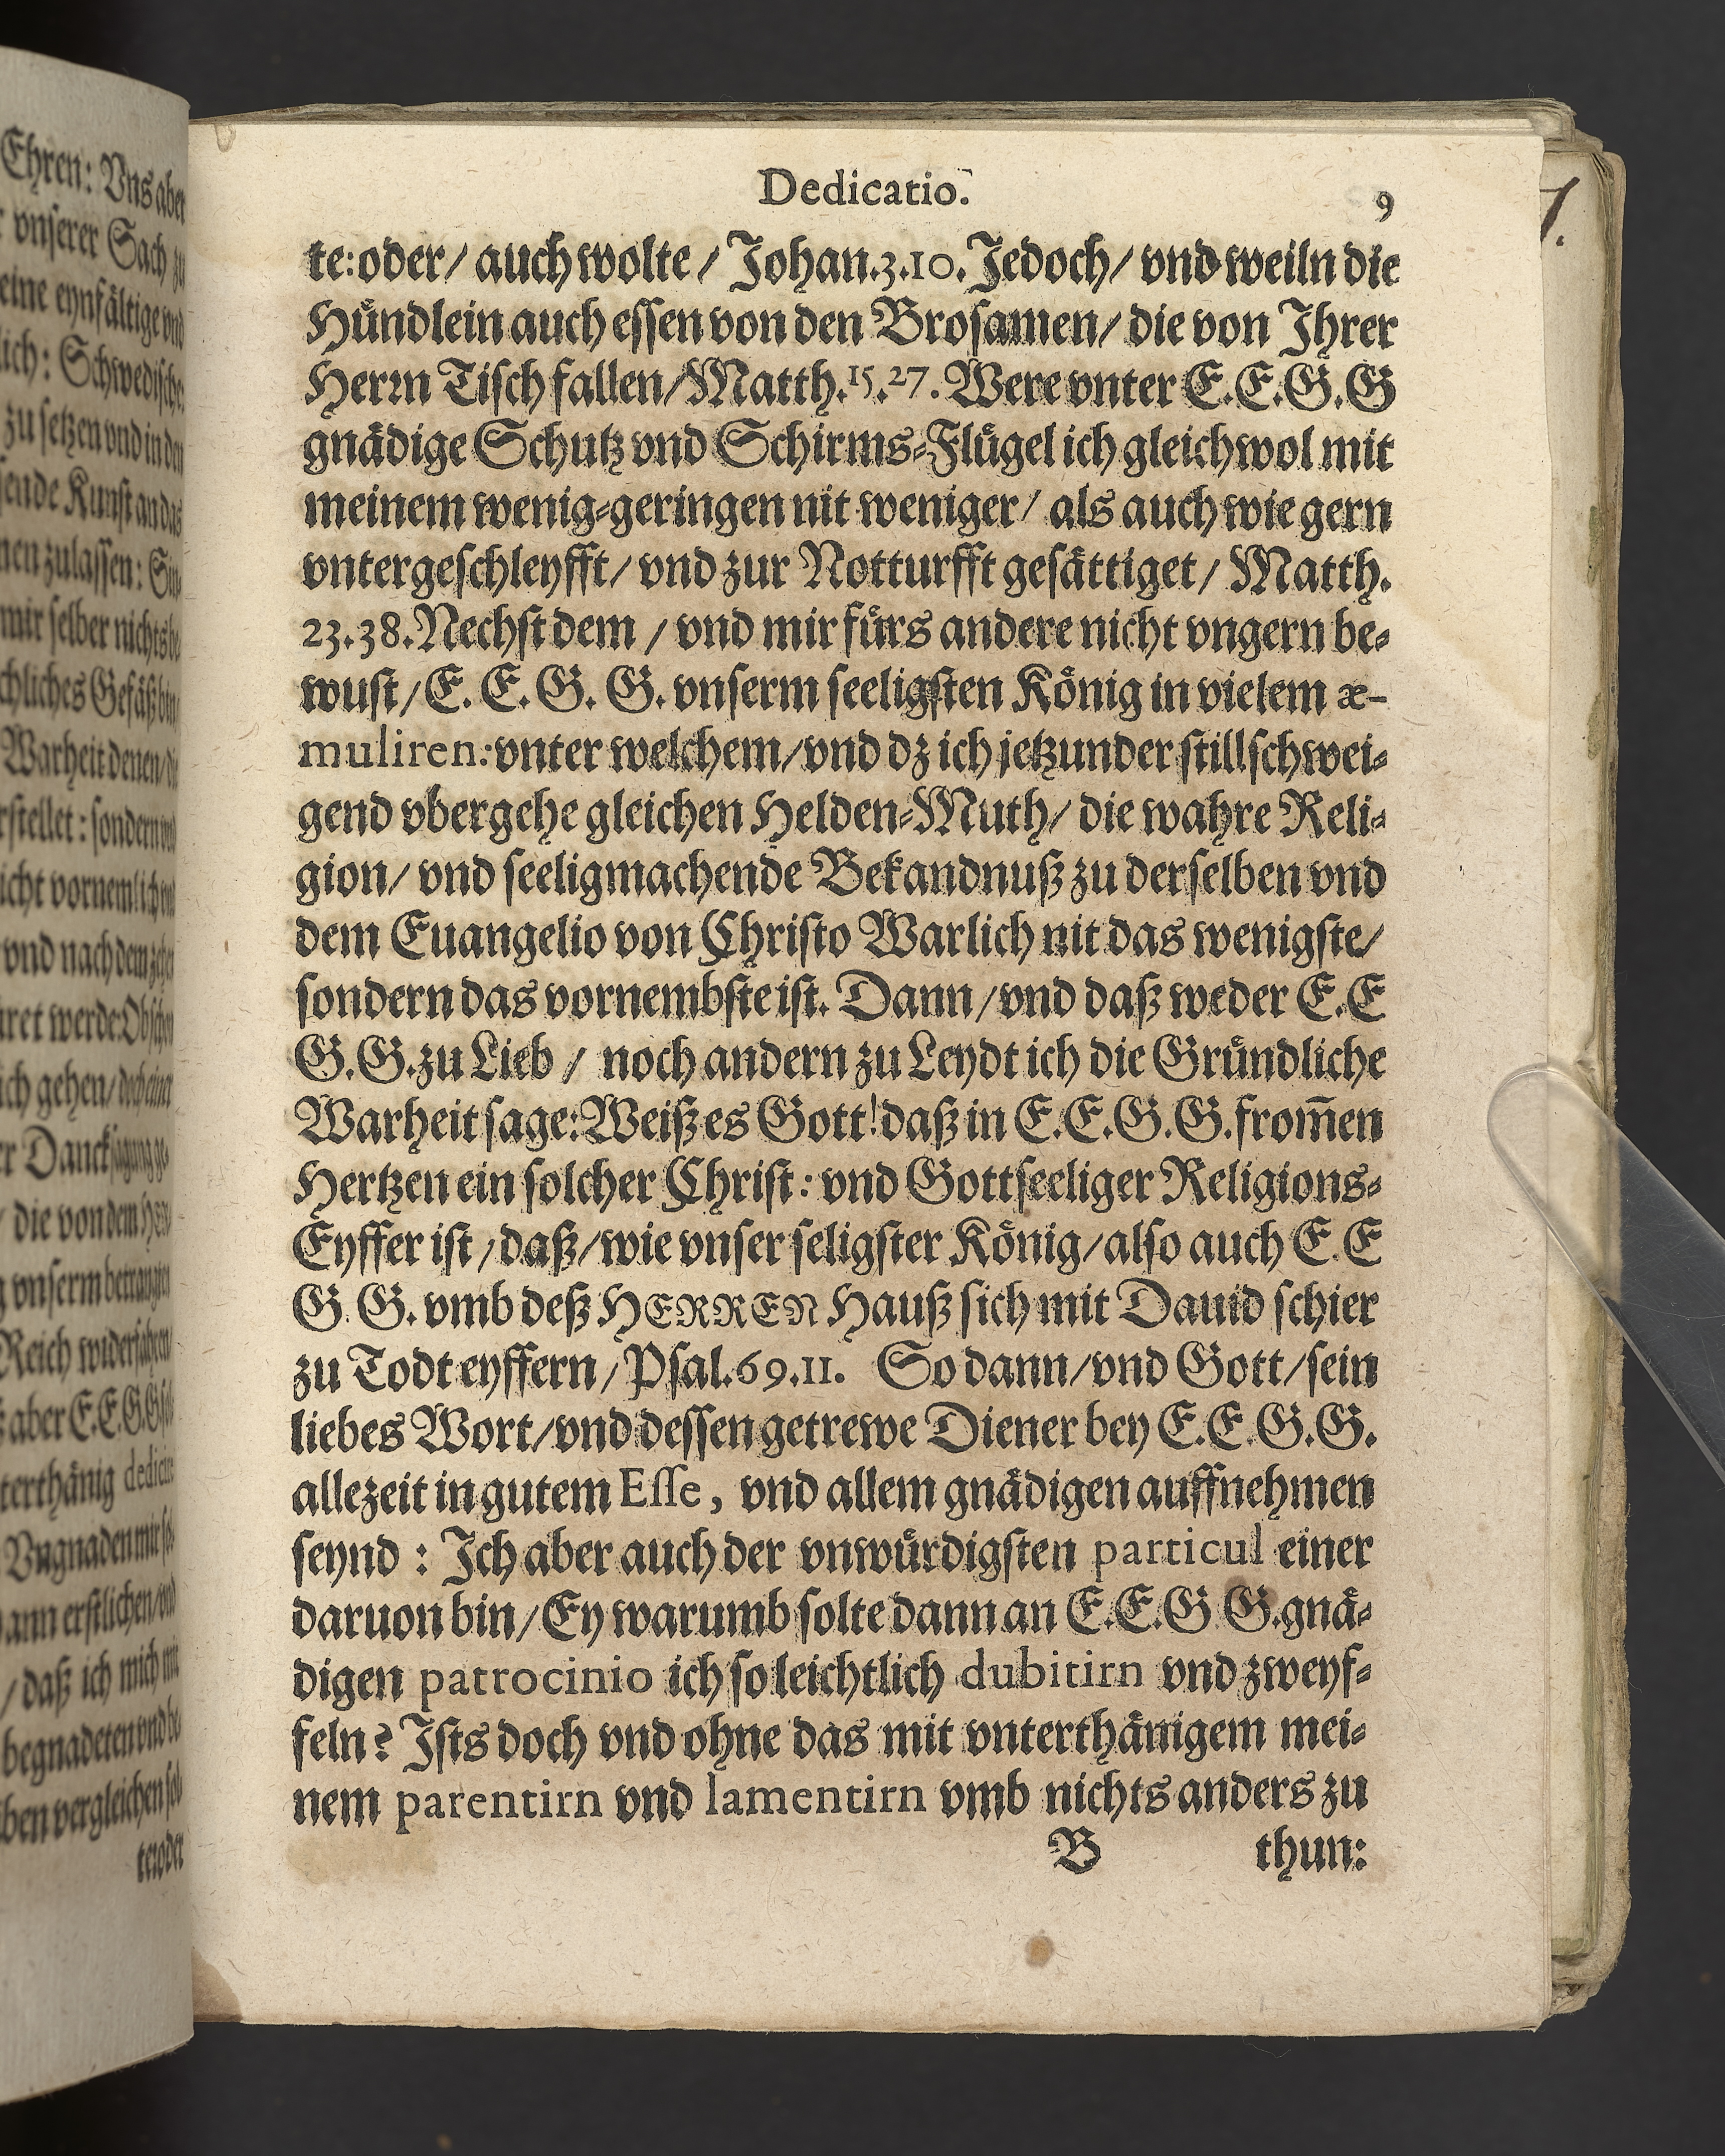 Dedicatio. 9
te: oder/ auch wolte/ Johan. 3. 10. Jedoch/ vnd weiln die
Hůndlein auch essen von den Brosamen/ die von Ihrer
Herrn Tisch fallen/ Matth. 15. 27. Were vnter E. E. G. G
gnådige Schutz vnd Schirms-Flůgel ich gleichwol mit
meinem wenig-geringen nit weniger/ als auch wie gern
vntergeschleyfft/ vnd zur Notturfft gesåttiget/ Matth.
23. 38. Nechst dem/ vnd mir fůrs andere nicht vngern be-
wust/ E. E. G. G. vnserm seeligsten Kőnig in vielem æ-
muliren: vnter welchem/ vnd dz ich jetzunder stillschwei-
gend vbergehe gleichen Helden-Muth/ die wahre Reli-
gion/ vnd seeligmachende Bekandnuß zu derselben vnd
dem Euangelio von Christo Warlich nit das wenigste/
sondern das vornembste ist. Dann/ vnd daß weder E. E
G. G. zu Lieb/ noch andern zu Leydt ich die Grůndliche
Warheit sage: Weiß es Gott! daß in E. E. G. G. from̃en
Hertzen ein solcher Christ: vnd Gottseeliger Religions-
Eyffer ist/ daß/ wie vnser seligster Kőnig/ also auch E. E
G. G. vmb deß HERREN Hauß sich mit Dauid schier
zu Todt eyffern/ Psal. 69. 11. So dann/ vnd Gott/ sein
liebes Wort/ vnd dessen getrewe Diener bey E. E. G. G.
allezeit in gutem Esse, vnd allem gnådigen auffnehmen
seynd: Ich aber auch der vnwůrdigsten particul einer
daruon bin/ Ey warumb solte dann an E. E. G G. gnå-
digen patrocinio ich so leichtlich dubitirn vnd zweyf-
feln? Ists doch vnd ohne das mit vnterthånigem mei-
nem parentirn vnd lamentirn vmb nichts anders zu
B thun: